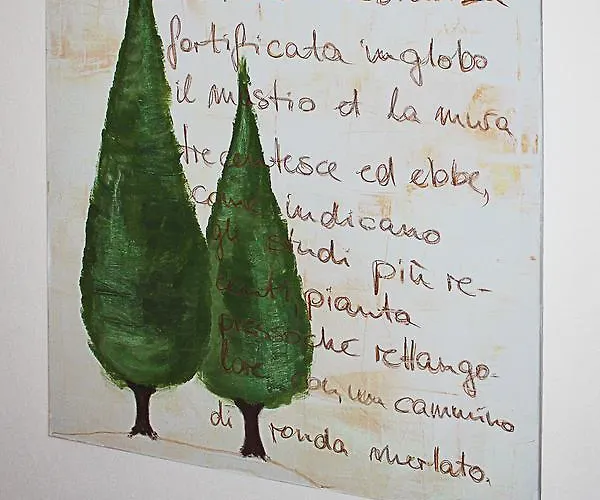 fortificata inglobo
il mastio et la mura
trecentesca ed ebbe,
come indicano
gli studi più re-
centi, pianta
pressoche rettango-
lare con, un cammino
di ronda merlato.